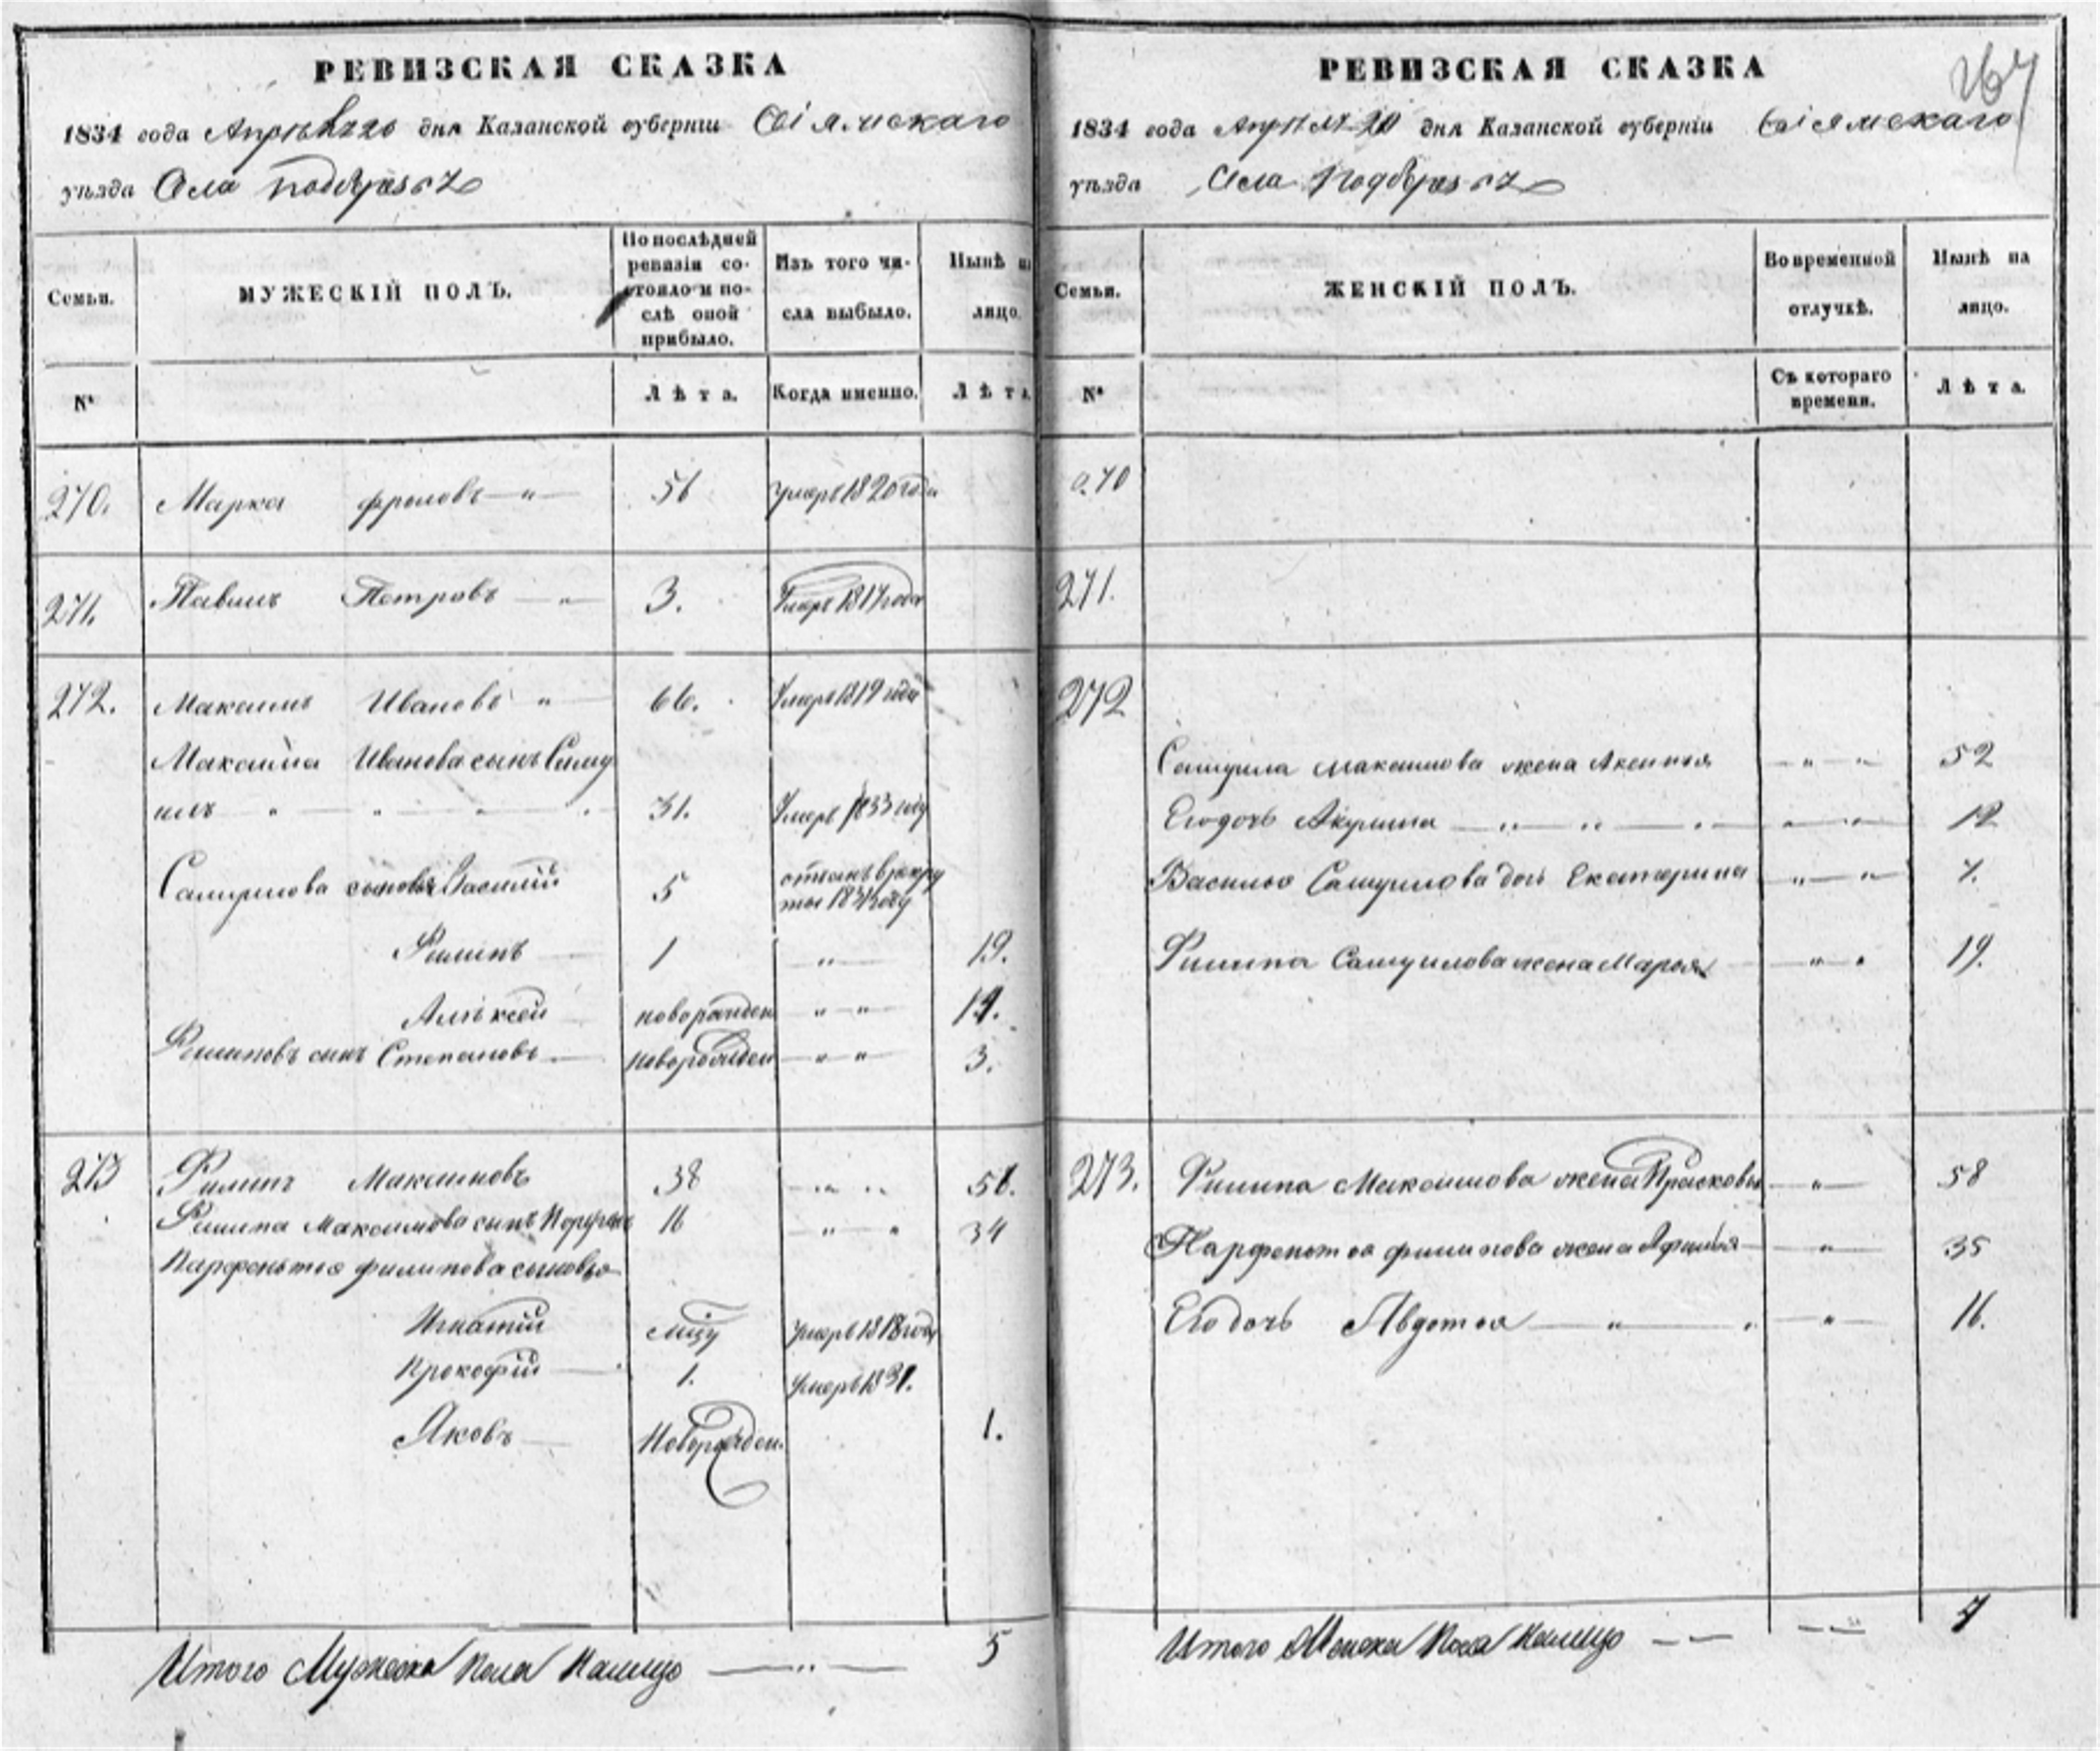 РЕВИЗСКАЯ СКАЗКА
1834 года Апреля 20 дня Казанской губерніи Свіяжскаго
уѣзда Села Подберезья
Семьи.
МУЖЕСКІЙ ПОЛЪ.
По послѣдней
ревизіи со-
стояло и по-
слѣ оной
прибыло.
Изъ того чи-
сла выбыло.
Нынѣ на
лицо.
№
Лѣта.
Когда именно.
Лѣта.
270.
Марка Фроловъ
56
умеръ 1820 года
271.
Павилъ Петровъ
3.
Умеръ 1817 года
272.
Максимъ Ивановъ
66.
Умеръ 1819 года
Максима Иванова сынъ Саму
илъ
31.
Умеръ 1833 году
Самуилова сыновья Василій
5
отданъ в рекру
ты 1834 году
Филипъ
1
19.
Алѣксей
новорожден
14.
Филиповъ сынъ Степановъ
новорожден
3.
273
Филипъ Максимовъ
38
56.
Филипа Максимова сынъ Порфенъ
16
34
Парфеньтья филипова сыновья
Игнатій
умеръ 1818 года
Прокофій
1.
умеръ 1831.
Яковъ
Новорожден.
1.
Итого Мужеска пола налицо
5
РЕВИЗСКАЯ СКАЗКА
267
1834 года Апреля 20 дня Казанской губерніи Свіяжскаго
уѣзда Села Подберезья
Семьи.
ЖЕНСКІЙ ПОЛЪ.
Во временной
отлучкѣ.
Нынѣ на
лицо.
№
Съ котораго
времени.
Лѣта.
270
271.
272
Самуила Максимова жена Аксинья
52
Его дочь Акулина
12
Василья Самуилова дочь Екатерина
7.
Филипа Самуилова жена Марья
19.
273.
Филипа Максимова жена Прасковья
58
Парфентья филипова жена Афимья
35
Его дочь Авдотья
16.
Итого Женска пола налицо
7